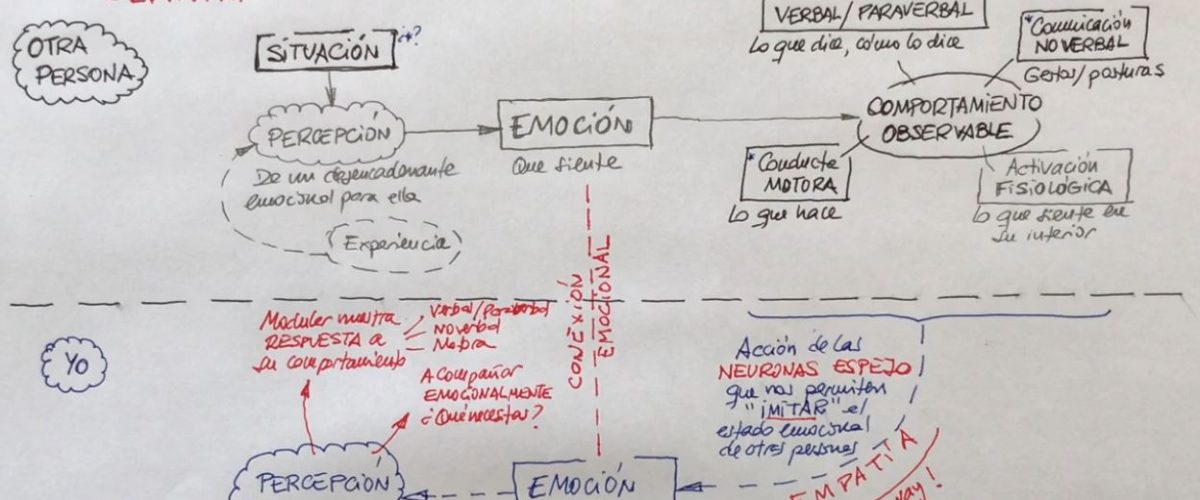 OTRA
PERSONA
SITUACIÓN
PERCEPCIÓN
De un desencadenante
emocional para ella
Experiencia
EMOCIÓN
Que siente
VERBAL / PARAVERBAL
Lo que dice, cómo lo dice
*Comunicación
NO VERBAL
Gestos/posturas
COMPORTAMIENTO
OBSERVABLE
*Conducta
MOTORA
Lo que hace
Activación
FISIOLÓGICA
Lo que siente en
su interior
CONEXIÓN
EMOCIONAL
YO
Modular nuestra
RESPUESTA a
su comportamiento
Verbal/Paraverbal
No verbal
Motora
Acompañar
EMOCIONALMENTE
¿Qué necesitas?
PERCEPCIÓN
EMOCIÓN
Acción de las
NEURONAS ESPEJO
que nos permiten
"IMITAR" el
estado emocional
de otras personas
EMPATÍA